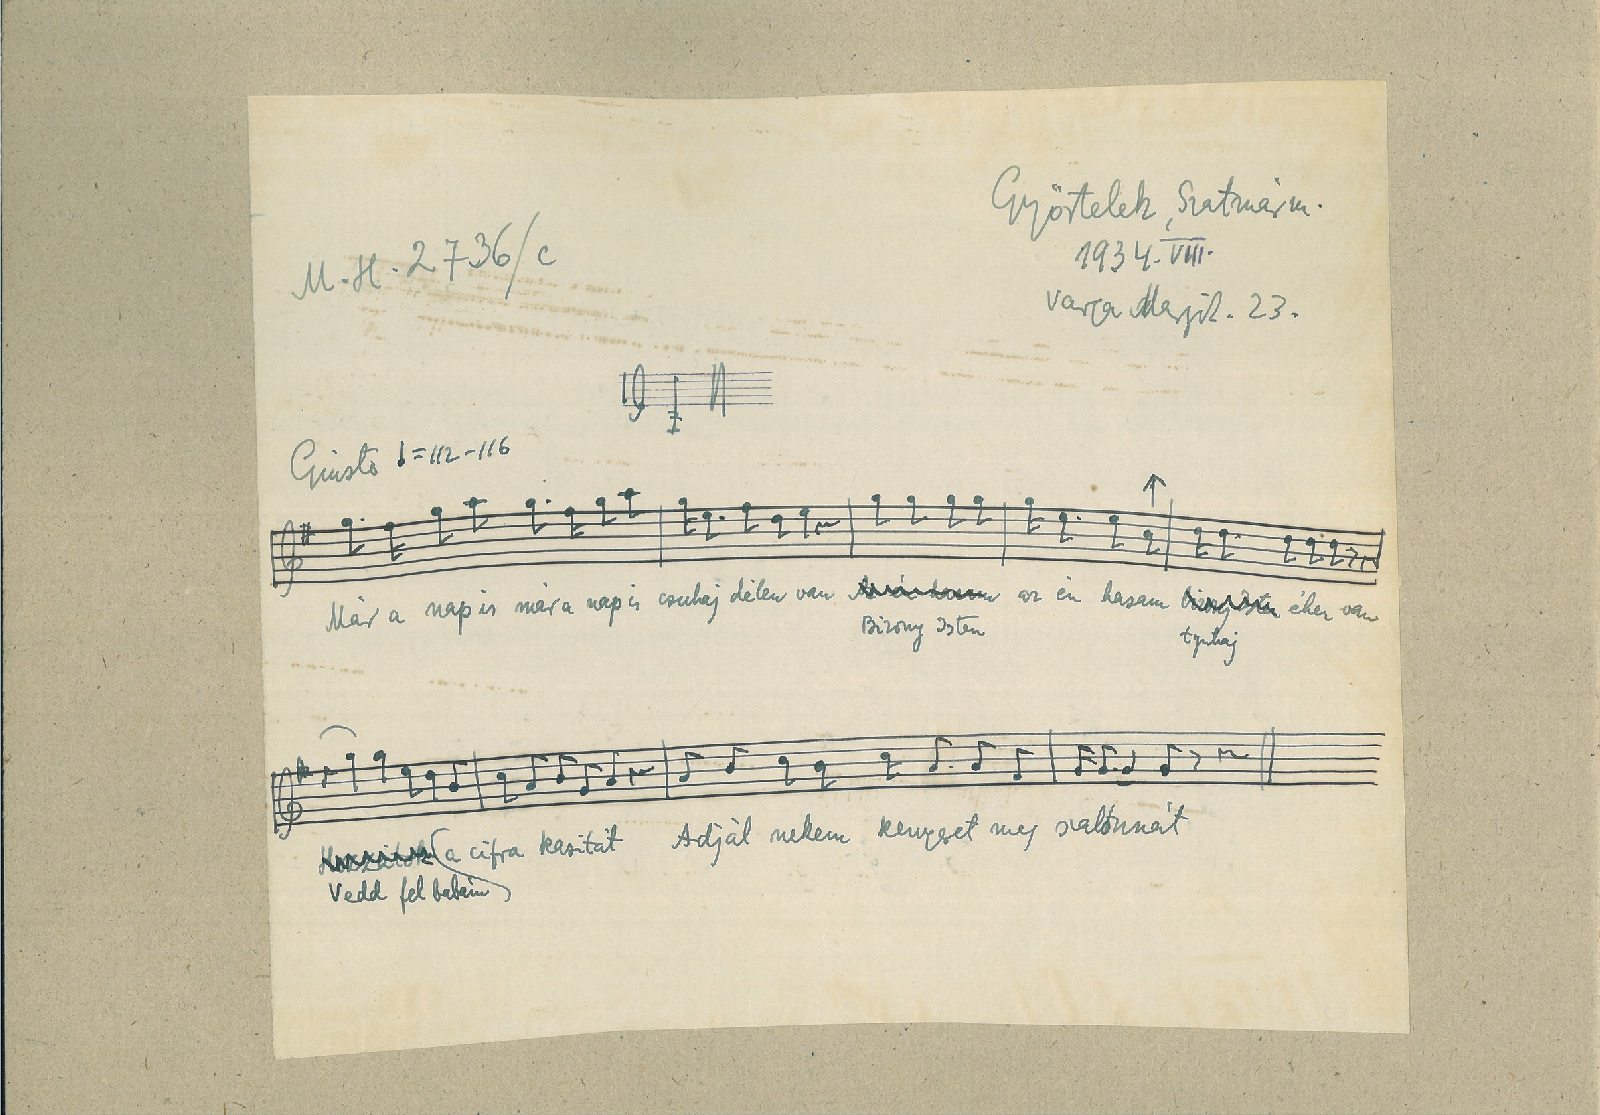 Györtelek, Szatmárm.
1934. VIII.
Varga Margit. 23.
M.H. 2736/c
Giusto ♩=112-116
Már a nap is már a nap is csuhaj délen van az én hasam éhen van
Bizony Isten
a cifra kasitát Adjál nekem kenyeret meg szalonnát
Vedd fel babám